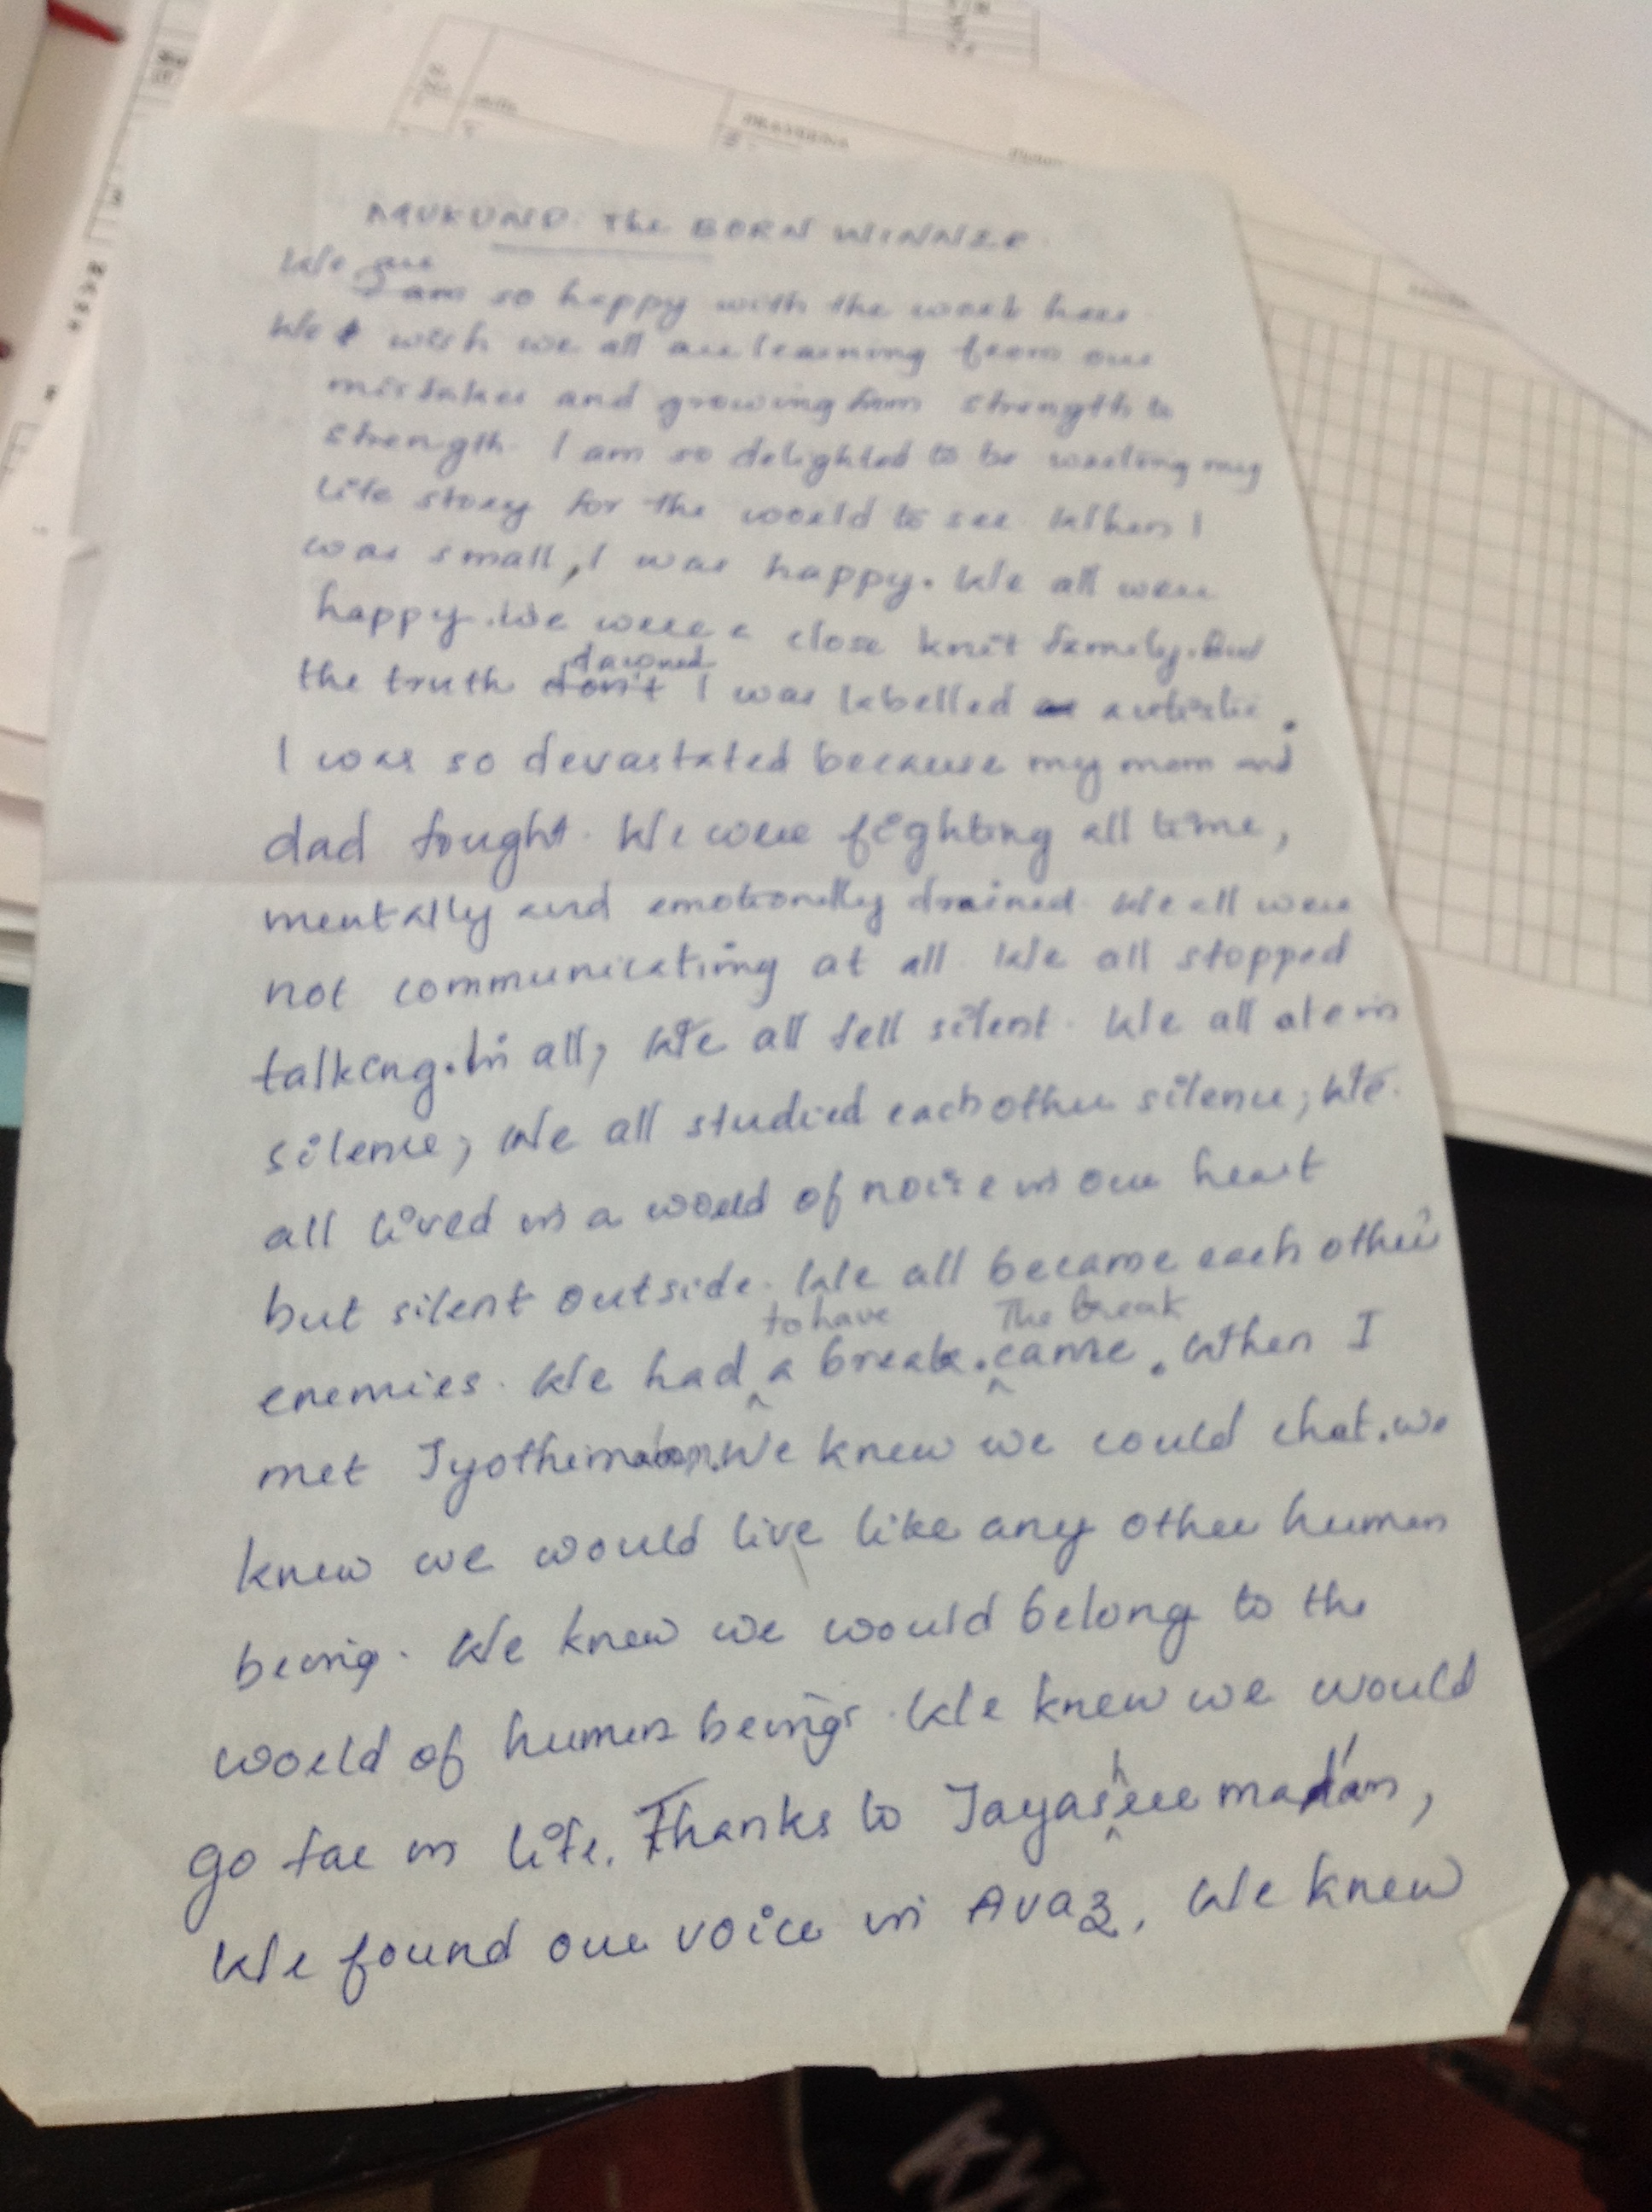 MUKUND. The BORN WINNER.
We are
I am so happy with the work here.
We I wish we all are learning from our
mistakes and growing from strength to
strength. I am so delighted to be writing my
life story for the world to see. When I
was small, I was happy. We all were
happy. We were a close knit family. But
dawned
the truth don't I was labelled as autistic.
I was so devastated because my mom and
dad fought. We were fighting all time,
mentally and emotionally drained. We all were
not communicating at all. We all stopped
talking. In all, We all fell silent. We all ate in
silence, We all studied each other silence, We
all lived in a world of noise in our heart
but silent outside. We all became each other
to have The break
enemies. We had a break. came. When I
met We knew we could chat. we
knew we would live like any other human
being. We knew we would belong to the
world of human beings. We knew we would
go far in life. Thanks to Jayashree madam,
We found our voice in Avaz. We knew